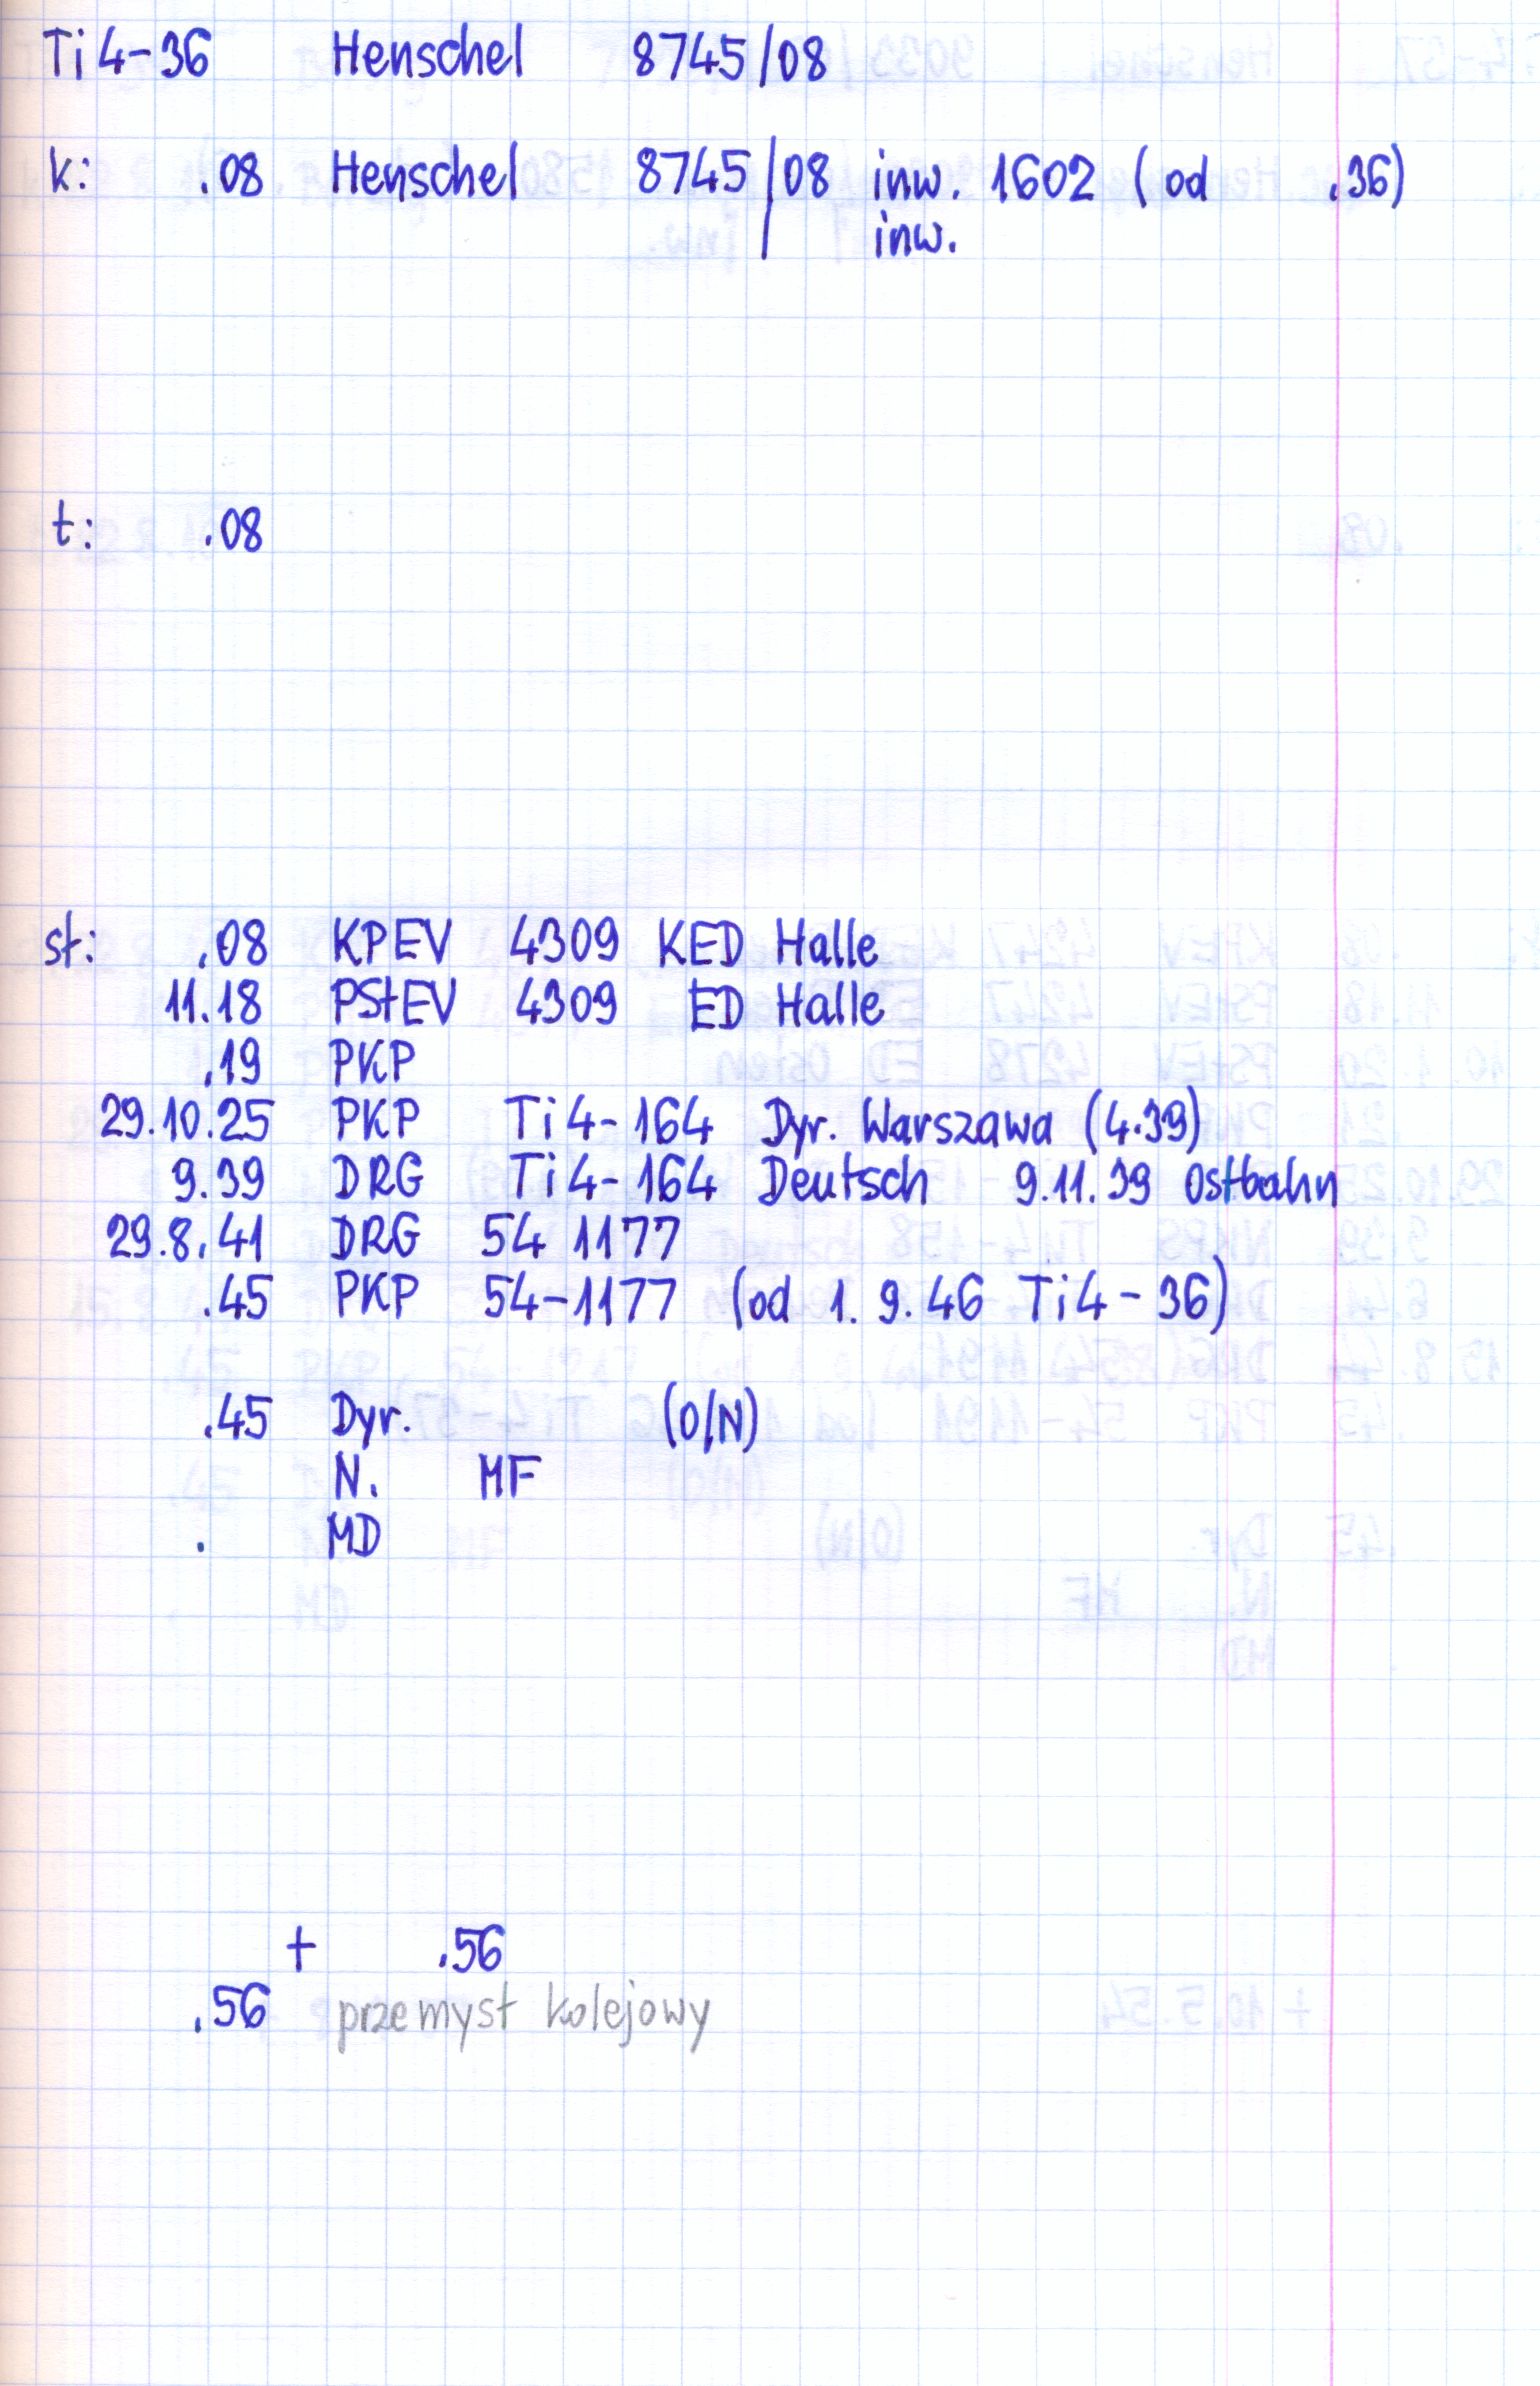 Ti4-36 Henschel 8745/08
k: .08 Henschel 8745/08 inw. 1602 (od .36)
/ inw.
t: .08
st: .08 KPEV 4309 KED Halle
11.18 PStEV 4309 ED Halle
.19 PKP
29.10.25 PKP Ti4-164 Dyr. Warszawa (4.39)
9.39 DRG Ti4-164 Deutsch 9.11.39 Ostbahn
29.8.41 DRG 54 1177
.45 PKP 54-1177 (od 1.9.46 Ti4-36)
.45 Dyr. (O/N)
N. MF
. MD
+ .56
.56 przemysł kolejowy